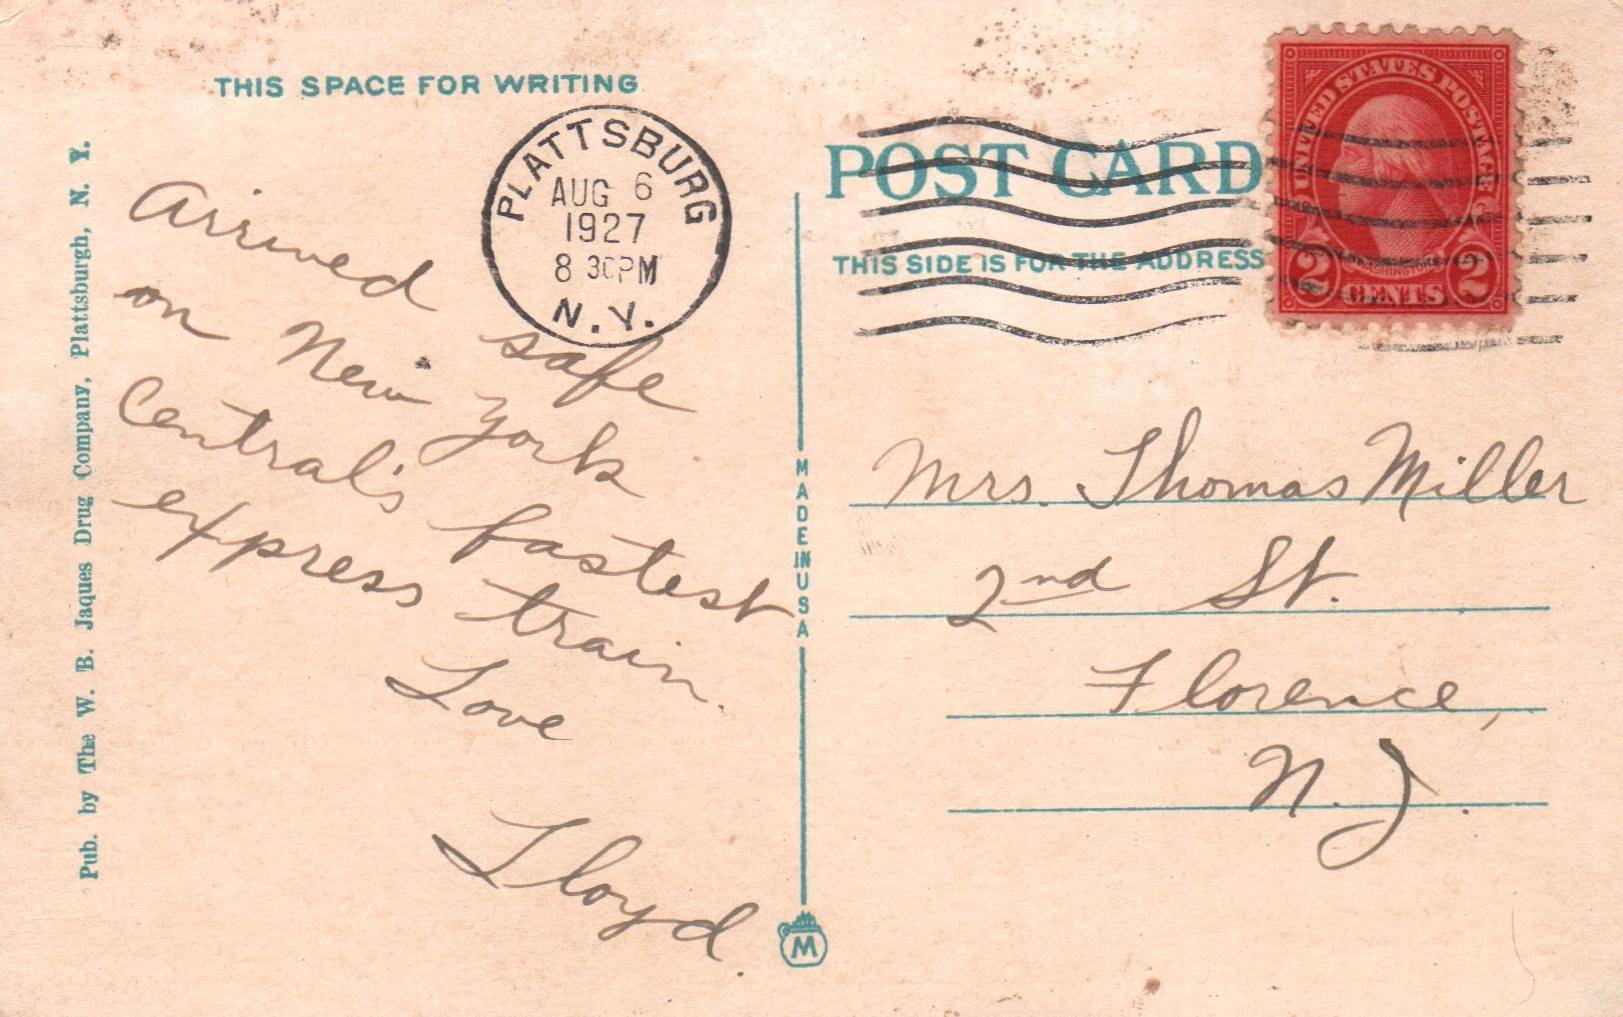 THIS SPACE FOR WRITING
Pub. by The W. B. Jaques Drug Company, Plattsburgh, N. Y.
PLATTSBURG
AUG 6
1927
8 30PM
N.Y.
Arrived safe
on New York
Central's fastest
express train.
Love
Lloyd.
MADE IN USA
M
POST CARD
THIS SIDE IS FOR THE ADDRESS
UNITED STATES POSTAGE
WASHINGTON
2 CENTS 2
Mrs. Thomas Miller
2nd St.
Florence,
N. J.